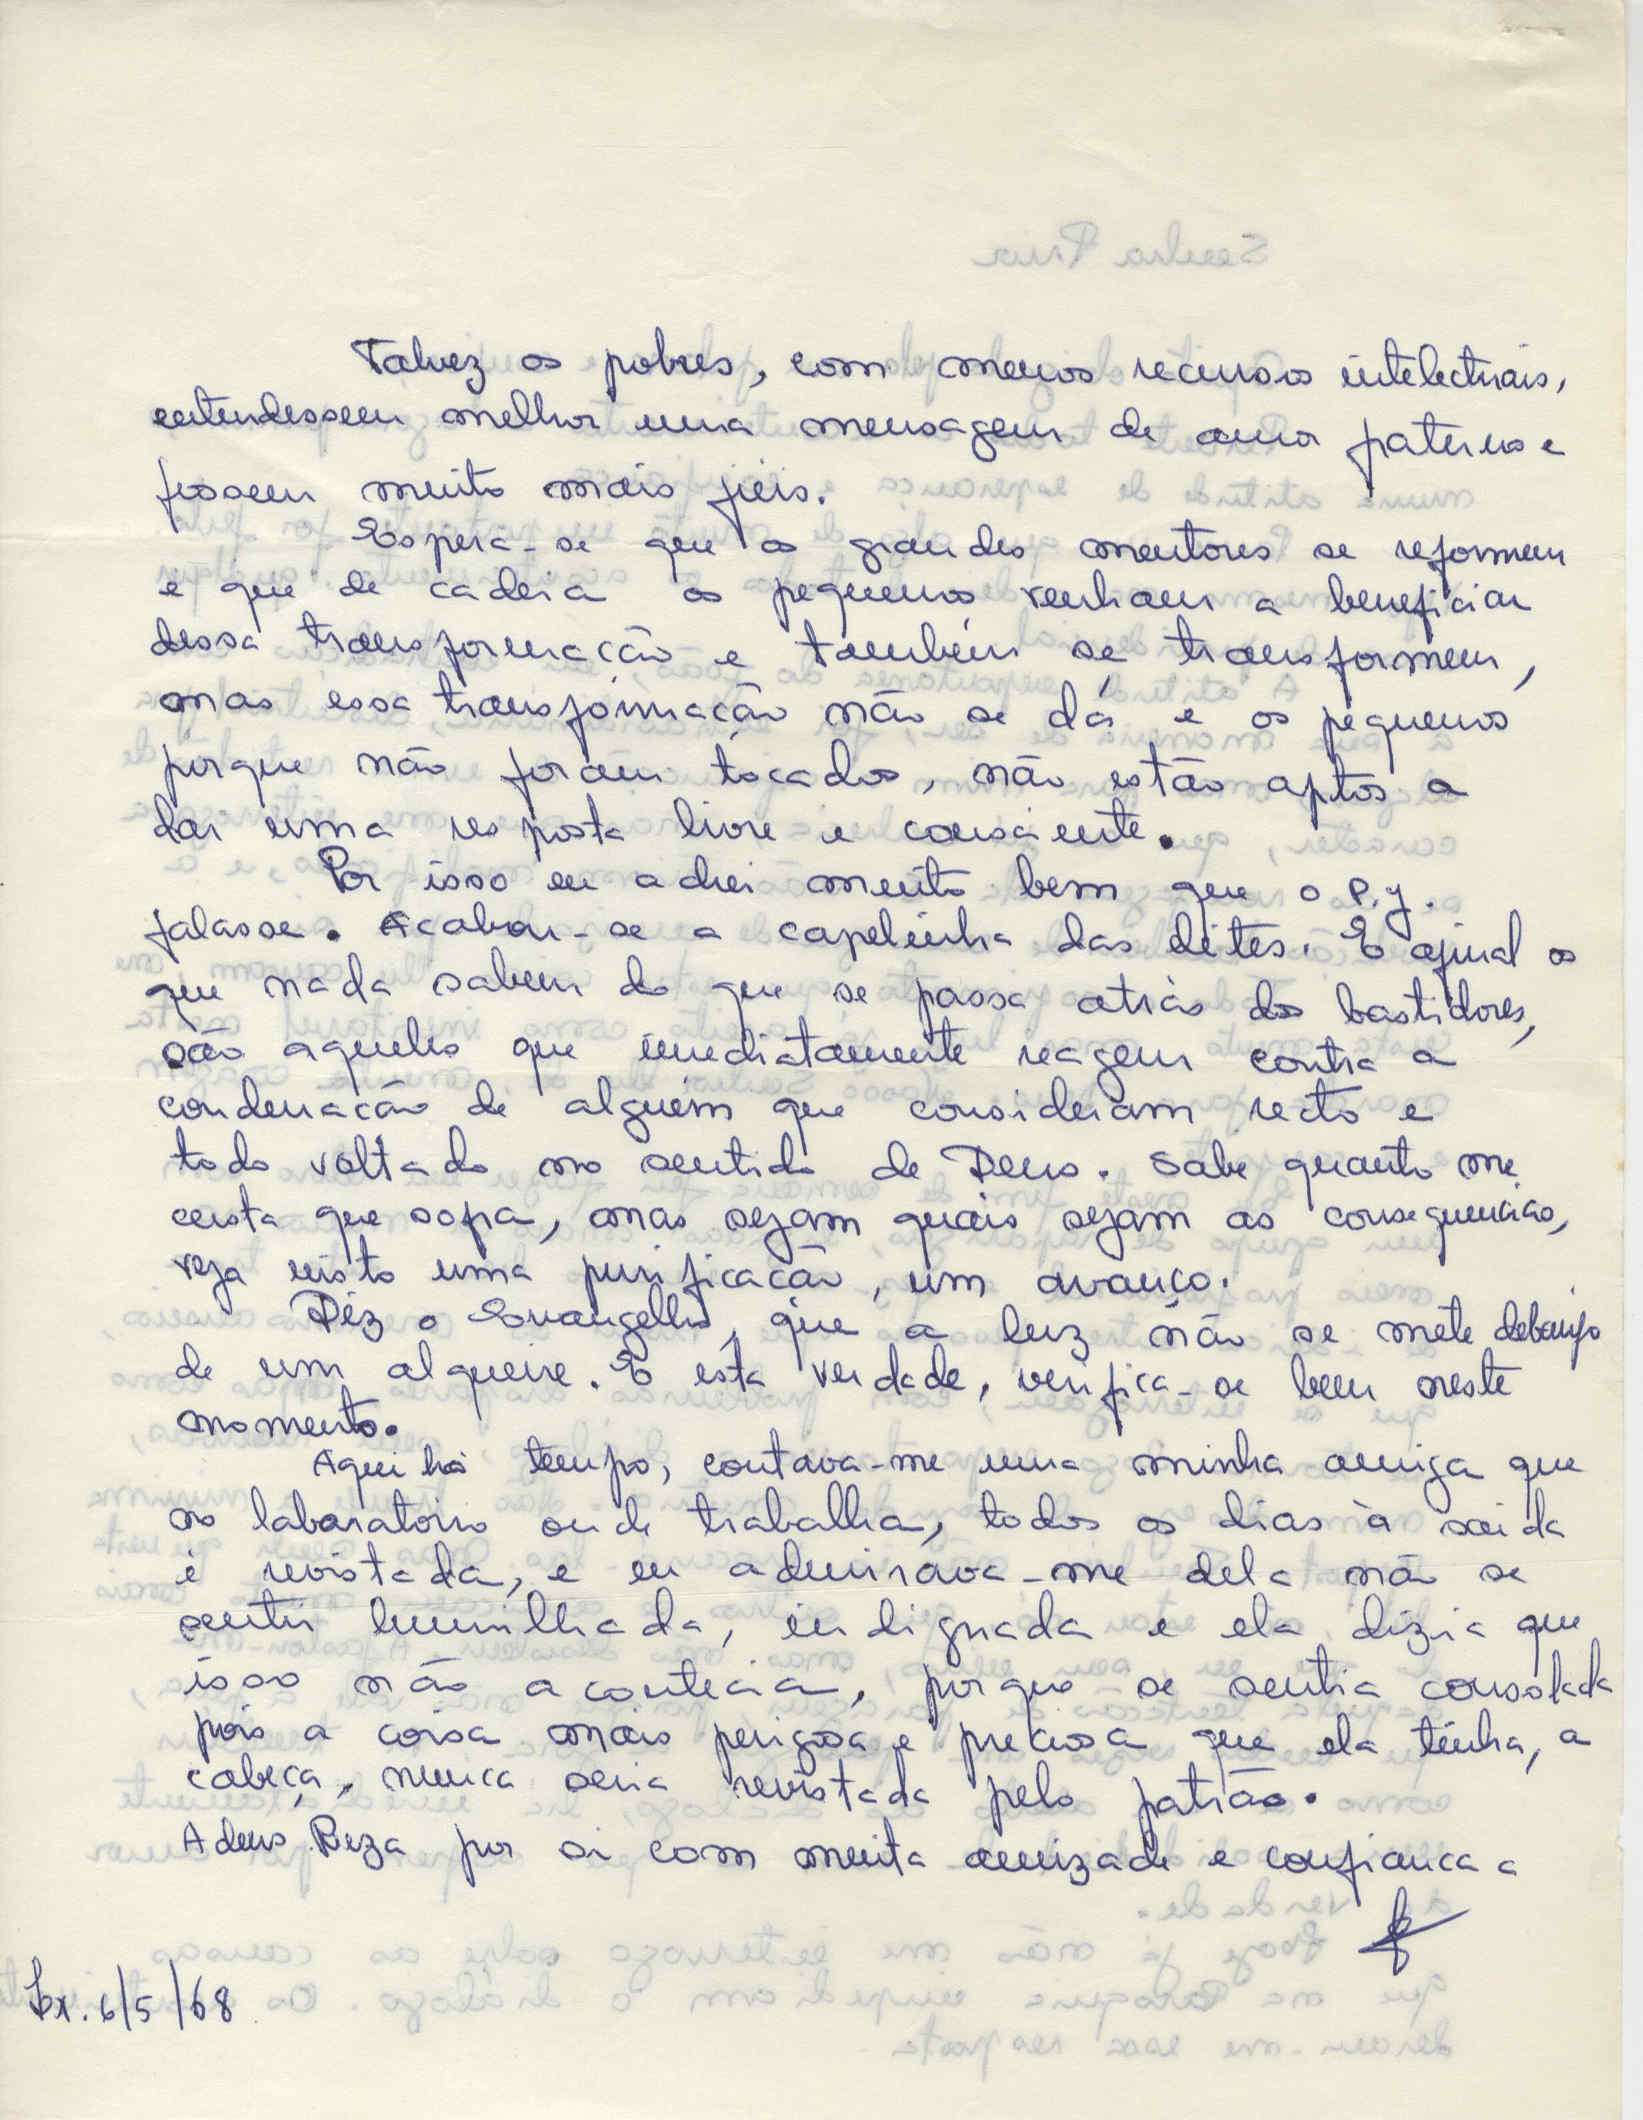 Talvez os pobres, com menos recursos intelectuais,
entendessem melhor uma mensagem de amor paterno e
fossem muito mais fieis.
Espera-se que os grandes mentores se reformem
e que de cadeia os pequenos venham a beneficiar
dessa transformação e também se transformem,
mas essa transformação não se dá e os pequenos
porque não foram tocados, não estão aptos a
dar uma resposta livre e consciente.
Por isso eu achei muito bem que o P.
falasse. Acabou-se a capelinha das elites. E afinal os
que nada sabem do que se passa atrás dos bastidores,
são aqueles que imediatamente reagem contra a
condenação de alguém que consideram recto e
todo voltado no sentido de Deus. Sabe quanto me
custa que sofra, mas sejam quais sejam as consequencias,
veja nisto uma purificação, um avanço.
Diz o Evangelho, que a luz não se mete debaixo
de um alqueire. E esta verdade, verifica-se bem neste
momento.
Aqui há tempo, contava-me uma minha amiga que
no laboratorio onde trabalha, todos os dias à saida
é revistada, e eu admirava-me dela não se
sentir humilhada, indignada e ela dizia que
isso não acontecia, porque se sentia consolada
pois a coisa mais perigosa e preciosa que ela tinha, a
cabeça, nunca seria revistada pelo patrão.
Adeus. Reza por si com muita amizade e confiança a
Lx. 6/5/68